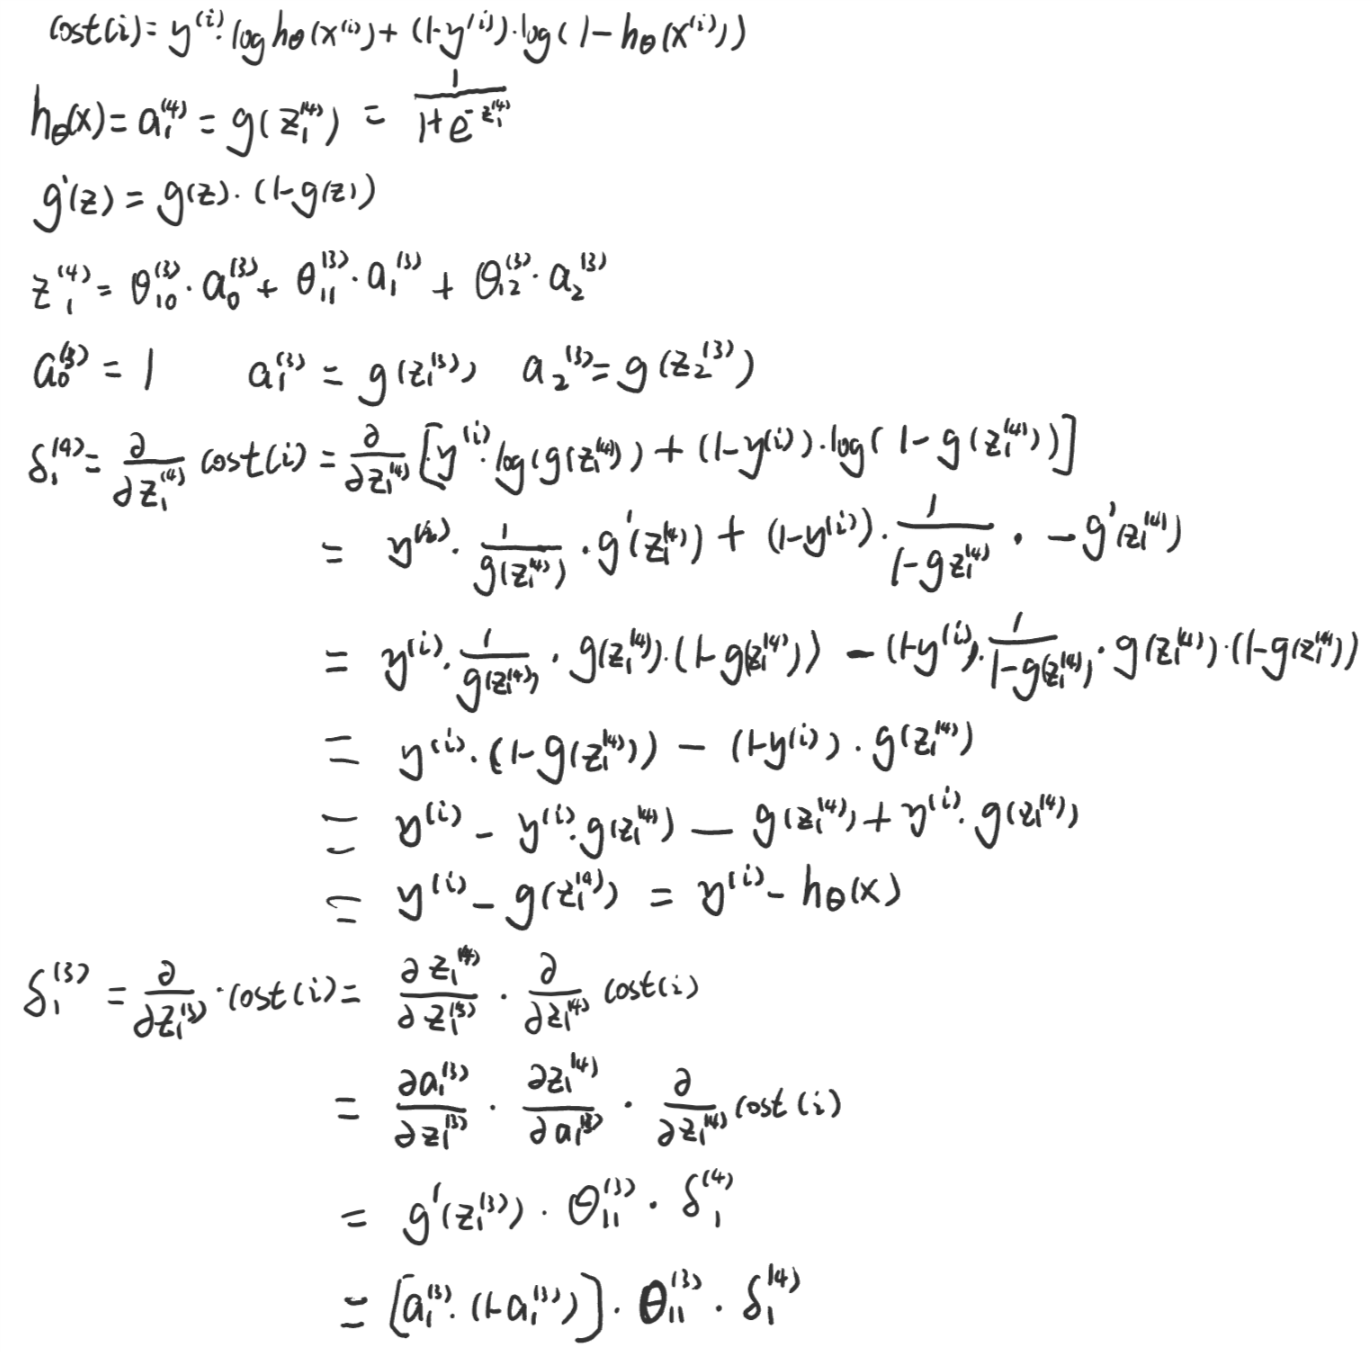 cost(i) = y⁽ⁱ⁾·log hθ(x⁽ⁱ⁾) + (1-y⁽ⁱ⁾)·log(1-hθ(x⁽ⁱ⁾))
hθ(x) = a₁⁽⁴⁾ = g(z₁⁽⁴⁾) = 1/(1+e^(-z₁⁽⁴⁾))
g'(z) = g(z)·(1-g(z))
z₁⁽⁴⁾ = θ₁₀⁽³⁾·a₀⁽³⁾ + θ₁₁⁽³⁾·a₁⁽³⁾ + θ₁₂⁽³⁾·a₂⁽³⁾
a₀⁽³⁾ = 1 a₁⁽³⁾ = g(z₁⁽³⁾) a₂⁽³⁾ = g(z₂⁽³⁾)
δ₁⁽⁴⁾ = ∂/∂z₁⁽⁴⁾ cost(i) = ∂/∂z₁⁽⁴⁾ [y⁽ⁱ⁾·log(g(z₁⁽⁴⁾)) + (1-y⁽ⁱ⁾)·log(1-g(z₁⁽⁴⁾))]
= y⁽ⁱ⁾·1/g(z₁⁽⁴⁾)·g'(z₁⁽⁴⁾) + (1-y⁽ⁱ⁾)·1/(1-gz₁⁽⁴⁾)·-g'(z₁⁽⁴⁾)
= y⁽ⁱ⁾·1/g(z₁⁽⁴⁾)·g(z₁⁽⁴⁾)·(1-g(z₁⁽⁴⁾)) - (1-y⁽ⁱ⁾)·1/(1-g(z₁⁽⁴⁾))·g(z₁⁽⁴⁾)·(1-g(z₁⁽⁴⁾))
= y⁽ⁱ⁾·(1-g(z₁⁽⁴⁾)) - (1-y⁽ⁱ⁾)·g(z₁⁽⁴⁾)
= y⁽ⁱ⁾ - y⁽ⁱ⁾·g(z₁⁽⁴⁾) - g(z₁⁽⁴⁾) + y⁽ⁱ⁾·g(z₁⁽⁴⁾)
= y⁽ⁱ⁾ - g(z₁⁽⁴⁾) = y⁽ⁱ⁾ - hθ(x)
δ₁⁽³⁾ = ∂/∂z₁⁽³⁾·cost(i) = ∂z₁⁽⁴⁾/∂z₁⁽³⁾ · ∂/∂z₁⁽⁴⁾ cost(i)
= ∂a₁⁽³⁾/∂z₁⁽³⁾ · ∂z₁⁽⁴⁾/∂a₁⁽³⁾ · ∂/∂z₁⁽⁴⁾ cost(i)
= g'(z₁⁽³⁾)·θ₁₁⁽³⁾·δ₁⁽⁴⁾
= [a₁⁽³⁾·(1-a₁⁽³⁾)]·θ₁₁⁽³⁾·δ₁⁽⁴⁾